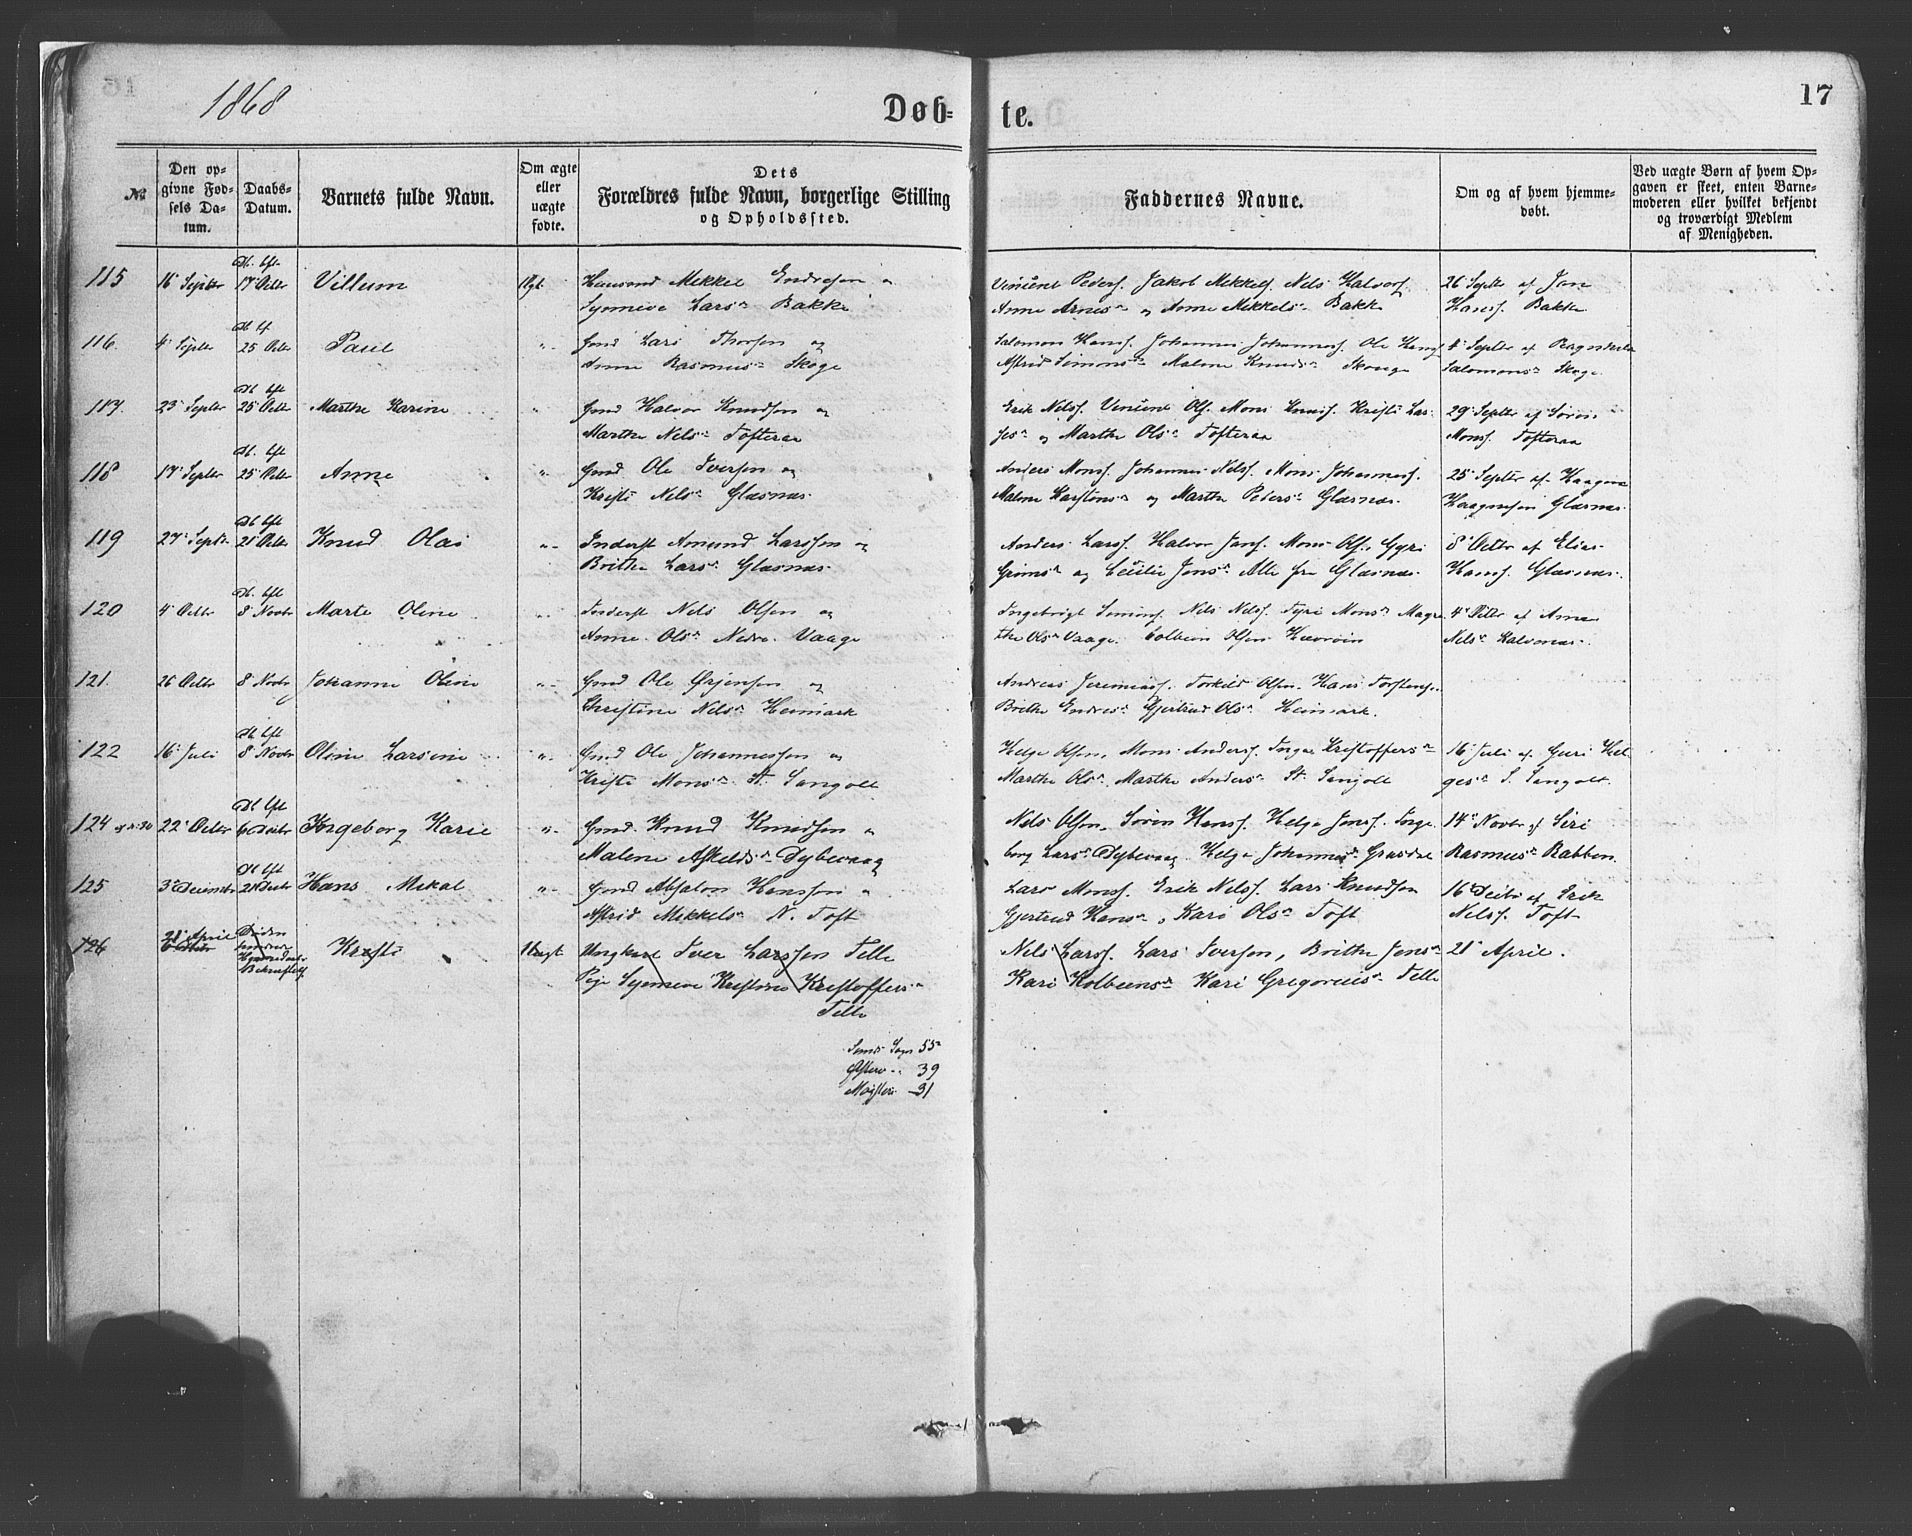 1868
Døb-
te.
17
№
Den opgivne Fødsels Datum.
Daabs-Datum.
Barnets fulde Navn.
Om ægte eller uægte fødte.
Dets
Forældres fulde Navn, borgerlige Stilling
og Opholdssted.
Faddernes Navne.
Om og af hvem hjemmedøbt.
Ved uægte Børn af hvem Opgaven er skeet, enten Barnemoderen eller hvilket bekjendt og troværdigt Medlem af Menigheden.
115 16 Septbr 17 Octbr Villum Ægt. Huusmd Mikkel Endresen og
Synneve Larsn Bakke
Vincent Peders. Jakob Mikkels. Nels Halvors.
Anne Arnesn og Anne Mikkelsn Bakke
26 Septbr af Jan
Hanss. Bakke
116. 4 Septbr 25 Octbr Paul " Gmd Lars Thorsen og
Anne Rasmusn Skoge
Salomon Hanss. Johannes Johanness. Ole Hanss
Astrid Simonsn Malene Knudsn Skouge
4 Septbr af
Salomonsn Skoge.
117. 23 Septbr 25 Octbr Marthe Karine " Gmd Halvor Knudsen og
Marthe Nelsn Tofteraa
Erik Nelss. Vincent Ols. Mons Kristi Lar-
sesn og Marthe Olsn Tofteraa
29 Septbr af Søren
Monss. Tofteraa
118 17 Septbr 25 Octbr Anne " Gmd Ole Iversen og
Kristi Nelsn Glæsnæs.
Anders Monss. Johannes Nelss. Mons Johanness.
Malene Karstensn og Marthe Petersn Glæsnæs.
25 Septbr af Haagen
Haagensen Glæsnæs.
119 27 Septbr Octbr Knud Olai " Inderst Amund Larssen og
Brithe Larsn Glæsnæs.
Anders Larss. Halvor Janss. Mons Ols. Gyri
Grimsn og Cecilie Jonsn Alle fra Glæsnæs.
8 Octbr af Elias
Hanss. Glæsnæs.
120 4 Octbr 8 Novbr Marte Oline " Inderst Nels Olsen og
Anne Olsn Nedre Vaage
Ingebrigt Simons. Nels Nelss. Monsn Magre-
the Olsn Vaage. Kolbein Olsen
4 Octbr af Anne
Nelsn Kalvenæs.
121. 26 Octbr 8 Novbr Johanne Oline " Gmd Ole Ørjensen og
Christine Nelsn Heimark
Andreas Jeremiass. Torkild Olsen. Hans Torstens.
Brithe Endresn Gjertrud Olsn Heimark.
122 16 Juli 8 Novbr Oline Larsine " Gmd Ole Johannessen og
Kristi Monsn St. Sangolt
Helge Olsen, Mons Anderss. Inger Kristoffersn
Marthe Olsn Marthe Andersn St. Sangolt
16 Juli af Guri Hel-
gesn S. Sangolt.
124 22 Octbr 6 Decbr Ingeborg Karie " Gmd. Knud Knudsen og
Malene Askeldsn Dybevaag
Nels Olsen, Søren Hanss. Helge Jonss. Inge-
borg Larsn Dybevaag. Helga Johannesn Grasdal
14 Novbr af Siri
Rasmusn Rabben.
125 3 December Decbr Hans Mikal " Gmd Absalon Hanssen og
Astrid Mikkelsn N. Toft
Lars Monss. Erik Nelss. Lars Knudsen
Gjertrud Hansn, Kari Olsn Toft
16 Decbr af Erik
Nelss. Toft
126 21 April Kristi Uægt Ungkarl Iver Larssen Telle
Pige Synneve Kristine Kristoffersn
Telle
Nels Larss. Lars Iversen, Brithe Jensn
Kari Kolbeensn Kari Gregoriusn Telle
21 April.
Sunds Sogn 55
Østerv " 39
Møgster 31